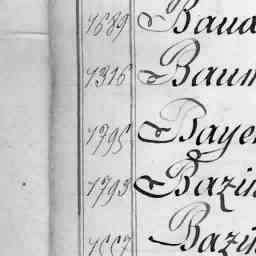 1689 Baud
1316 Baum
1795 Bayer
1793 Bazin
1667 Bazin